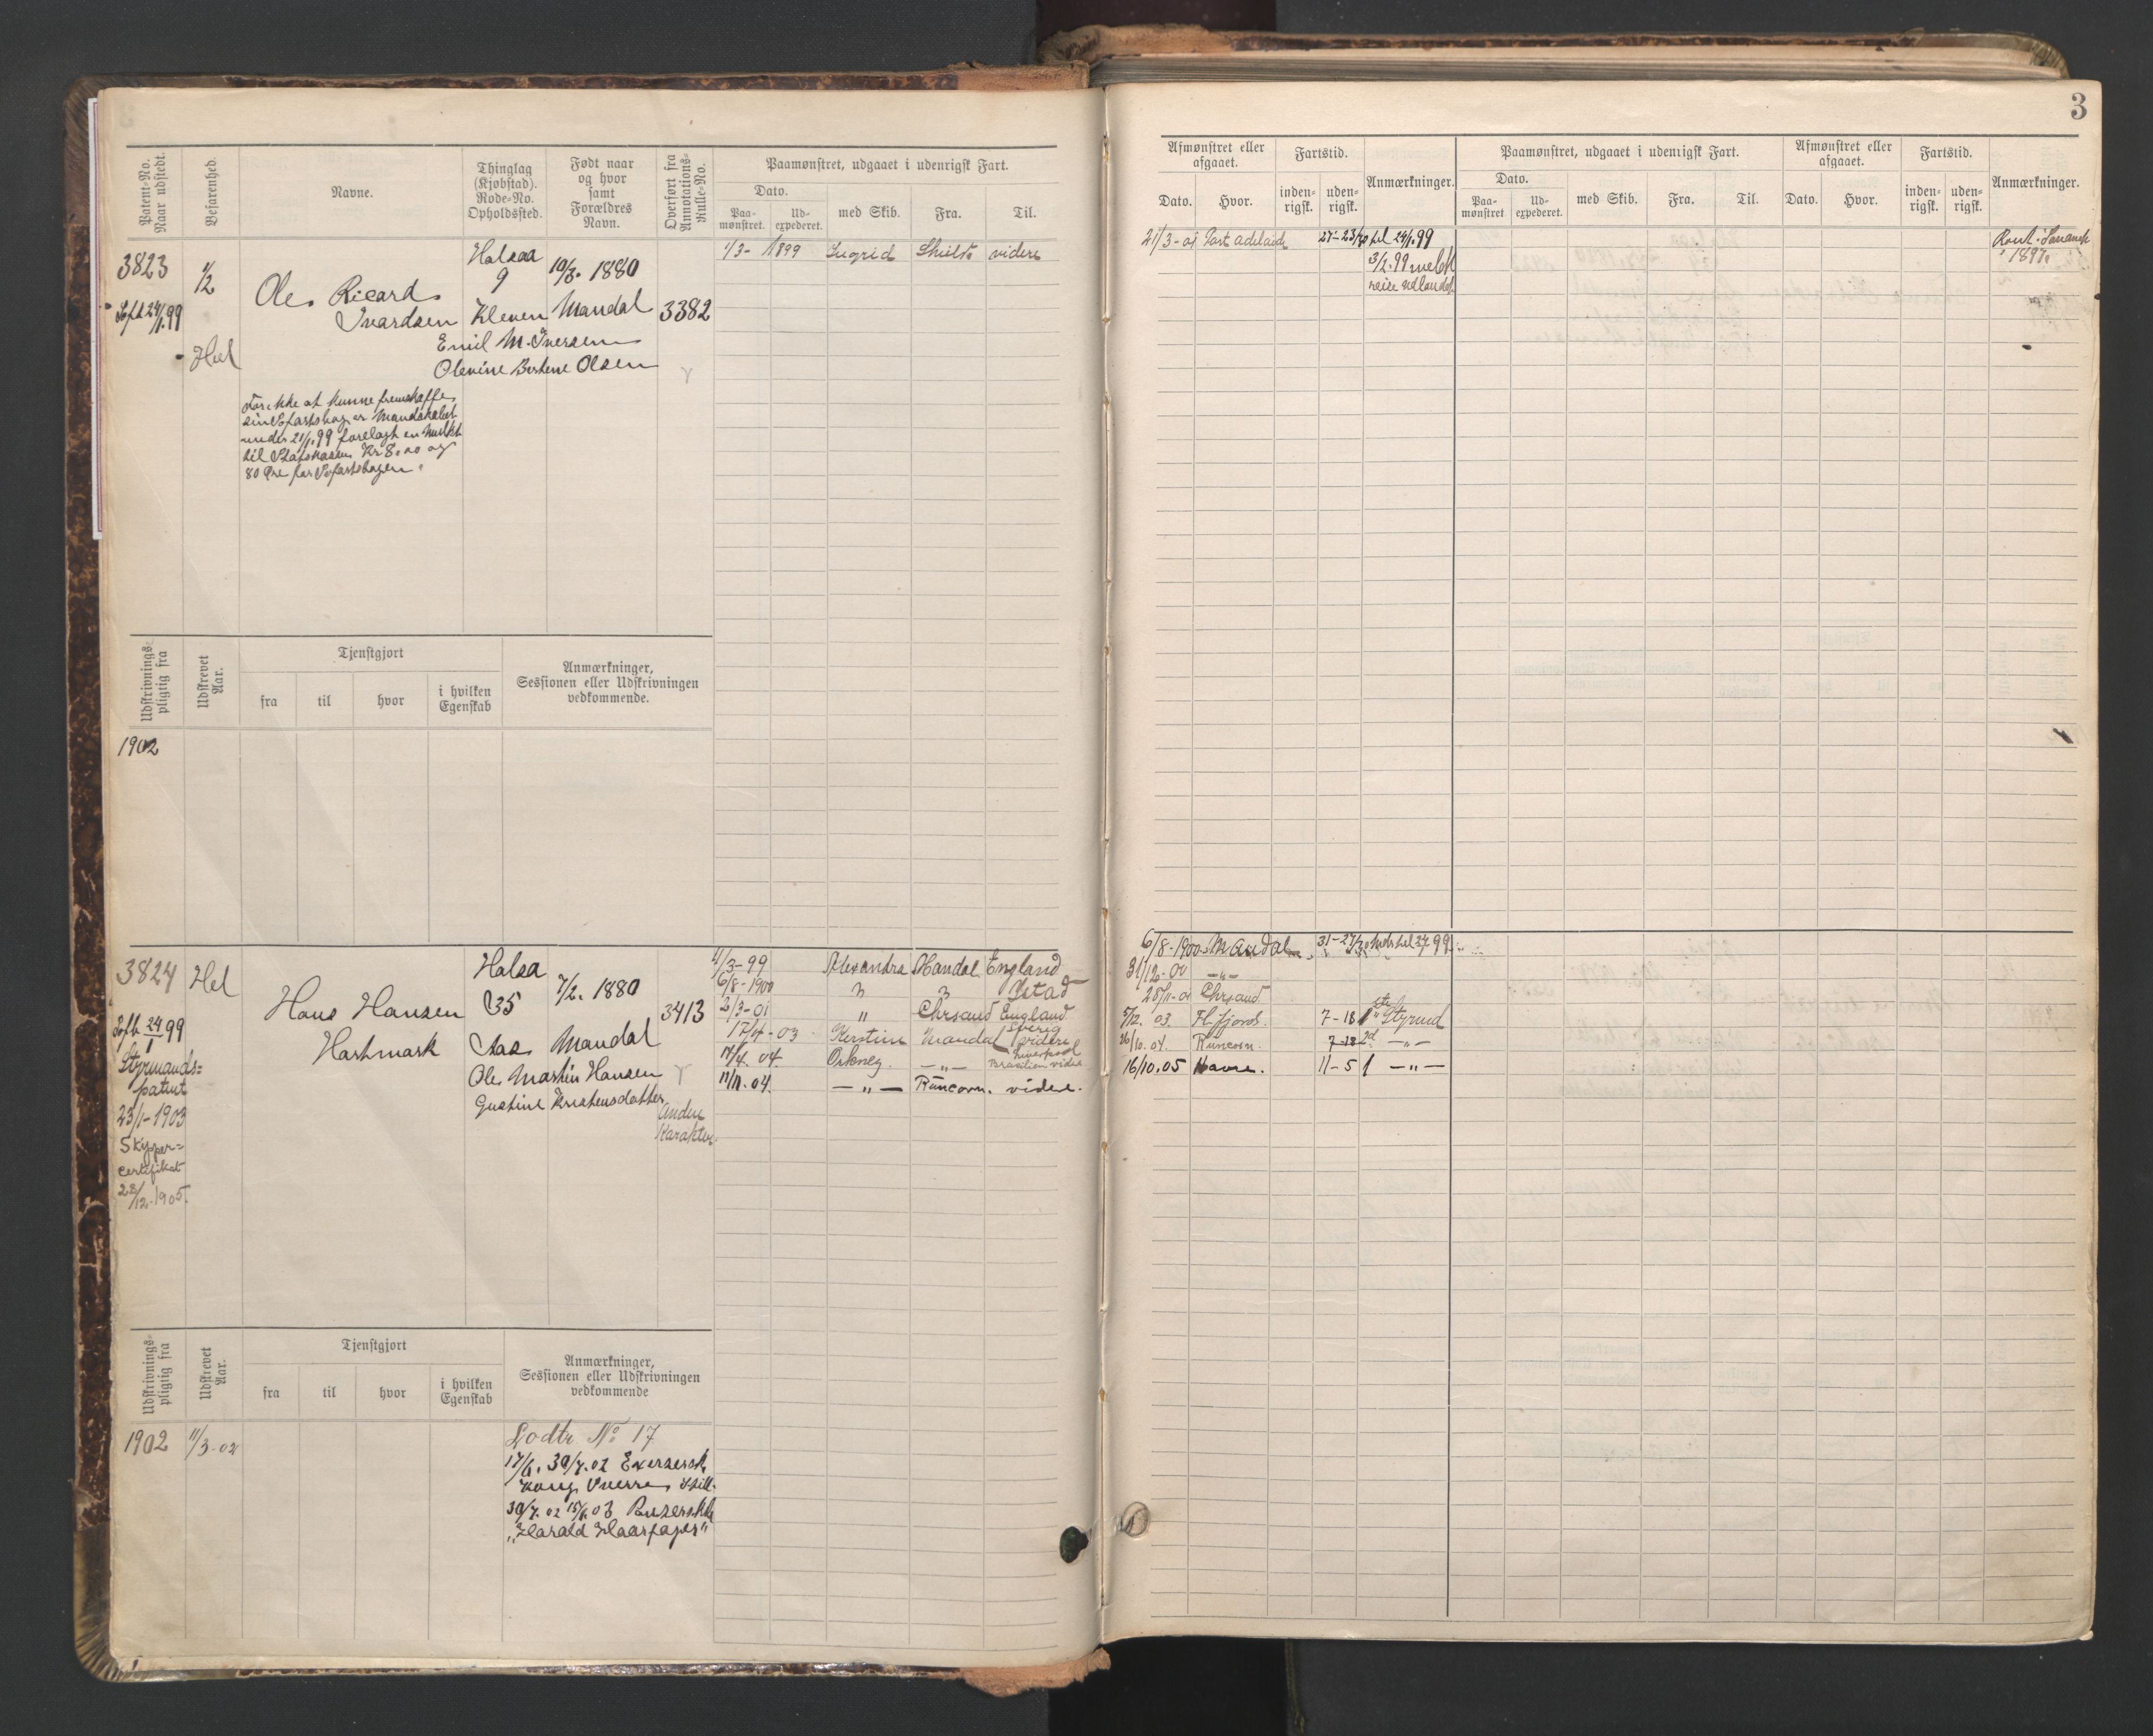 3
Patent-No. Naar udstedt.
Befarenhed.
Navne.
Thinglag (Kjøbstad). Rode-No. Opholdssted.
Født naar og hvor samt Forældres Navn.
Overført fra Annotations-Rulle-No.
Paamønstret, udgaaet i udenrigsk Fart.
Dato.
Paa-mønstret.
Ud-expederet.
med Skib.
Fra.
Til.
Afmønstret eller afgaaet.
Dato.
Hvor.
Fartstid.
inden-rigsk.
uden-rigsk.
Anmærkninger.
Paamønstret, udgaaet i udenrigsk Fart.
Dato.
Paa-mønstret
Ud-expederet.
med Skib.
Fra.
Til.
Afmønstret eller afgaaet.
Dato.
Hvor.
Fartstid.
inden-rigsk.
uden-rigsk.
Anmærkninger.
3823
1/2
Halsaa
9
10/3. 1880
Ole Ricard
Ivardsen
Kleven
Mandal
3382
Sofb 24/1.99
Emil M. Iversen
Hel
Olevine Bertene Olsen
For ikke at kunne fremskaffe
sin Sofartsbog er Mandskabet
under 21/1.99 forelagt en Mulkt
til Statskassen Kr 8.00 og
80 Øre for Sofartsbogen.
1/3- 1899 Sugrid videre
21/3-01 Port Adelaide
24/1.99
3/2.99 meldt
reise udlandet
1897.
Udskrivnings-pligtig fra
Udskrevet Aar.
Tjenstgjort
fra
til
hvor
i hvilken Egenskab
Anmærkninger, Sessionen eller Udskrivningen vedkommende.
1902
3824
Hel
Halsa
35
7/2. 1880
Hans Hansen
Hartmark
Aas
Mandal
3413
Sofb. 24/1 99
Ole Martin Hansen
Gustine Kristensdatter
Andre
Karakter
Styrmands=
patent
23/1-1903
Skipper=
certifikat
22/12-1905.
4/3-99 Alexandra Mandal England
6/8-1900 " " Ystad
2/3-01 " Chrsand England
17/4-03 Kerstine Mandal Sverig videre
14/4.04. Orkney. -"- Liverpool Brasilien videre
11/11.04. -"- Runcorn. videre.
6/8-1900 Mandal
31/12-00 -"-
28/11-01 Chrsand
5/12.03. Fl. fjord. 7-18 Styrmd
26/10.04. Runcorn. 7-18 2d -"-
16/10.05 Havre. 11-5 1 -"-
Udskrivnings-pligtig fra
Udskrevet Aar.
Tjenstgjort
fra
til
hvor
i hvilken Egenskab
Anmærkninger, Sessionen eller Udskrivningen vedkommende
1902
11/3-02
Lodtr No 17
17/6. 30/7.02 Exersersk.
Kong Sverre
30/7.02 15/6.03
„Harald Haarfager"